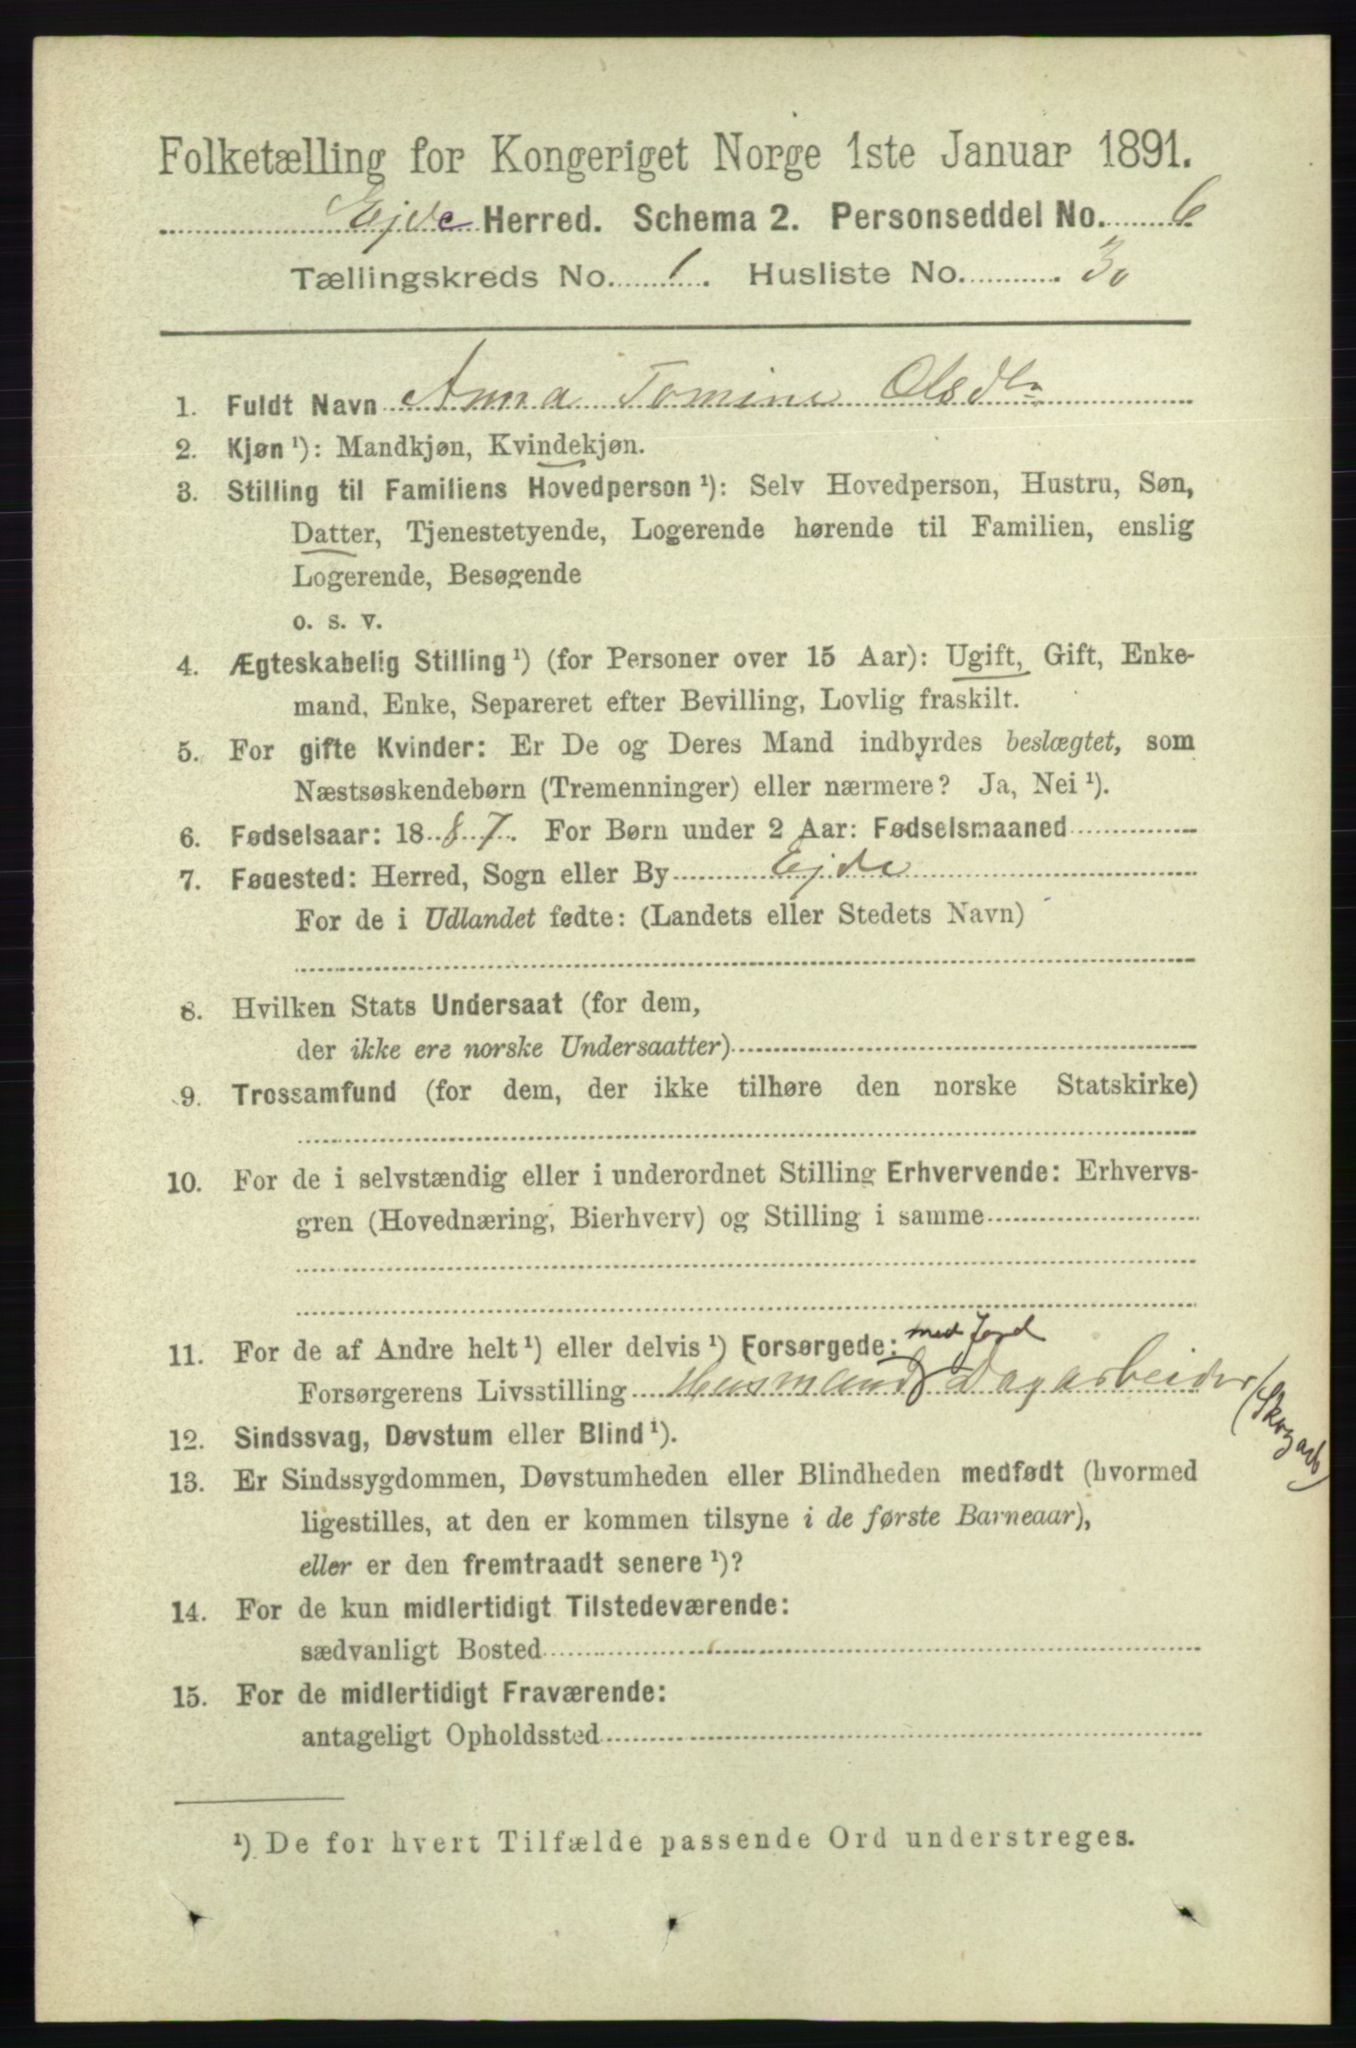 Folketælling for Kongeriget Norge 1ste Januar 1891.
Ejde Herred. Schema 2. Personseddel No. 6
Tællingskreds No. 1. Husliste No. 30
1. Fuldt Navn Anna Tomine Olsdtr
2. Kjøn ¹): Mandkjøn, Kvindekjøn.
3. Stilling til Familiens Hovedperson ¹): Selv Hovedperson, Hustru, Søn,
Datter, Tjenestetyende, Logerende hørende til Familien, enslig
Logerende, Besøgende
o. s. v.
4. Ægteskabelig Stilling ¹) (for Personer over 15 Aar): Ugift, Gift, Enke-
mand, Enke, Separeret efter Bevilling, Lovlig fraskilt.
5. For gifte Kvinder: Er De og Deres Mand indbyrdes beslægtet, som
Næstsøskendebørn (Tremenninger) eller nærmere? Ja, Nei ¹).
6. Fødselsaar: 1887. For Børn under 2 Aar: Fødselsmaaned
7. Fødested: Herred, Sogn eller By Ejde
For de i Udlandet fødte: (Landets eller Stedets Navn)
8. Hvilken Stats Undersaat (for dem,
der ikke ere norske Undersaatter)
9. Trossamfund (for dem, der ikke tilhøre den norske Statskirke)
10. For de i selvstændig eller i underordnet Stilling Erhvervende: Erhvervs-
gren (Hovednæring, Bierhverv) og Stilling i samme
11. For de af Andre helt ¹) eller delvis ¹) Forsørgede: med Jord
Forsørgerens Livsstilling Husmand Dagarbeider (Skogarb)
12. Sindssvag, Døvstum eller Blind ¹).
13. Er Sindssygdommen, Døvstumheden eller Blindheden medfødt (hvormed
ligestilles, at den er kommen tilsyne i de første Barneaar),
eller er den fremtraadt senere ¹)?
14. For de kun midlertidigt Tilstedeværende:
sædvanligt Bosted
15. For de midlertidigt Fraværende:
antageligt Opholdssted
¹) De for hvert Tilfælde passende Ord understreges.